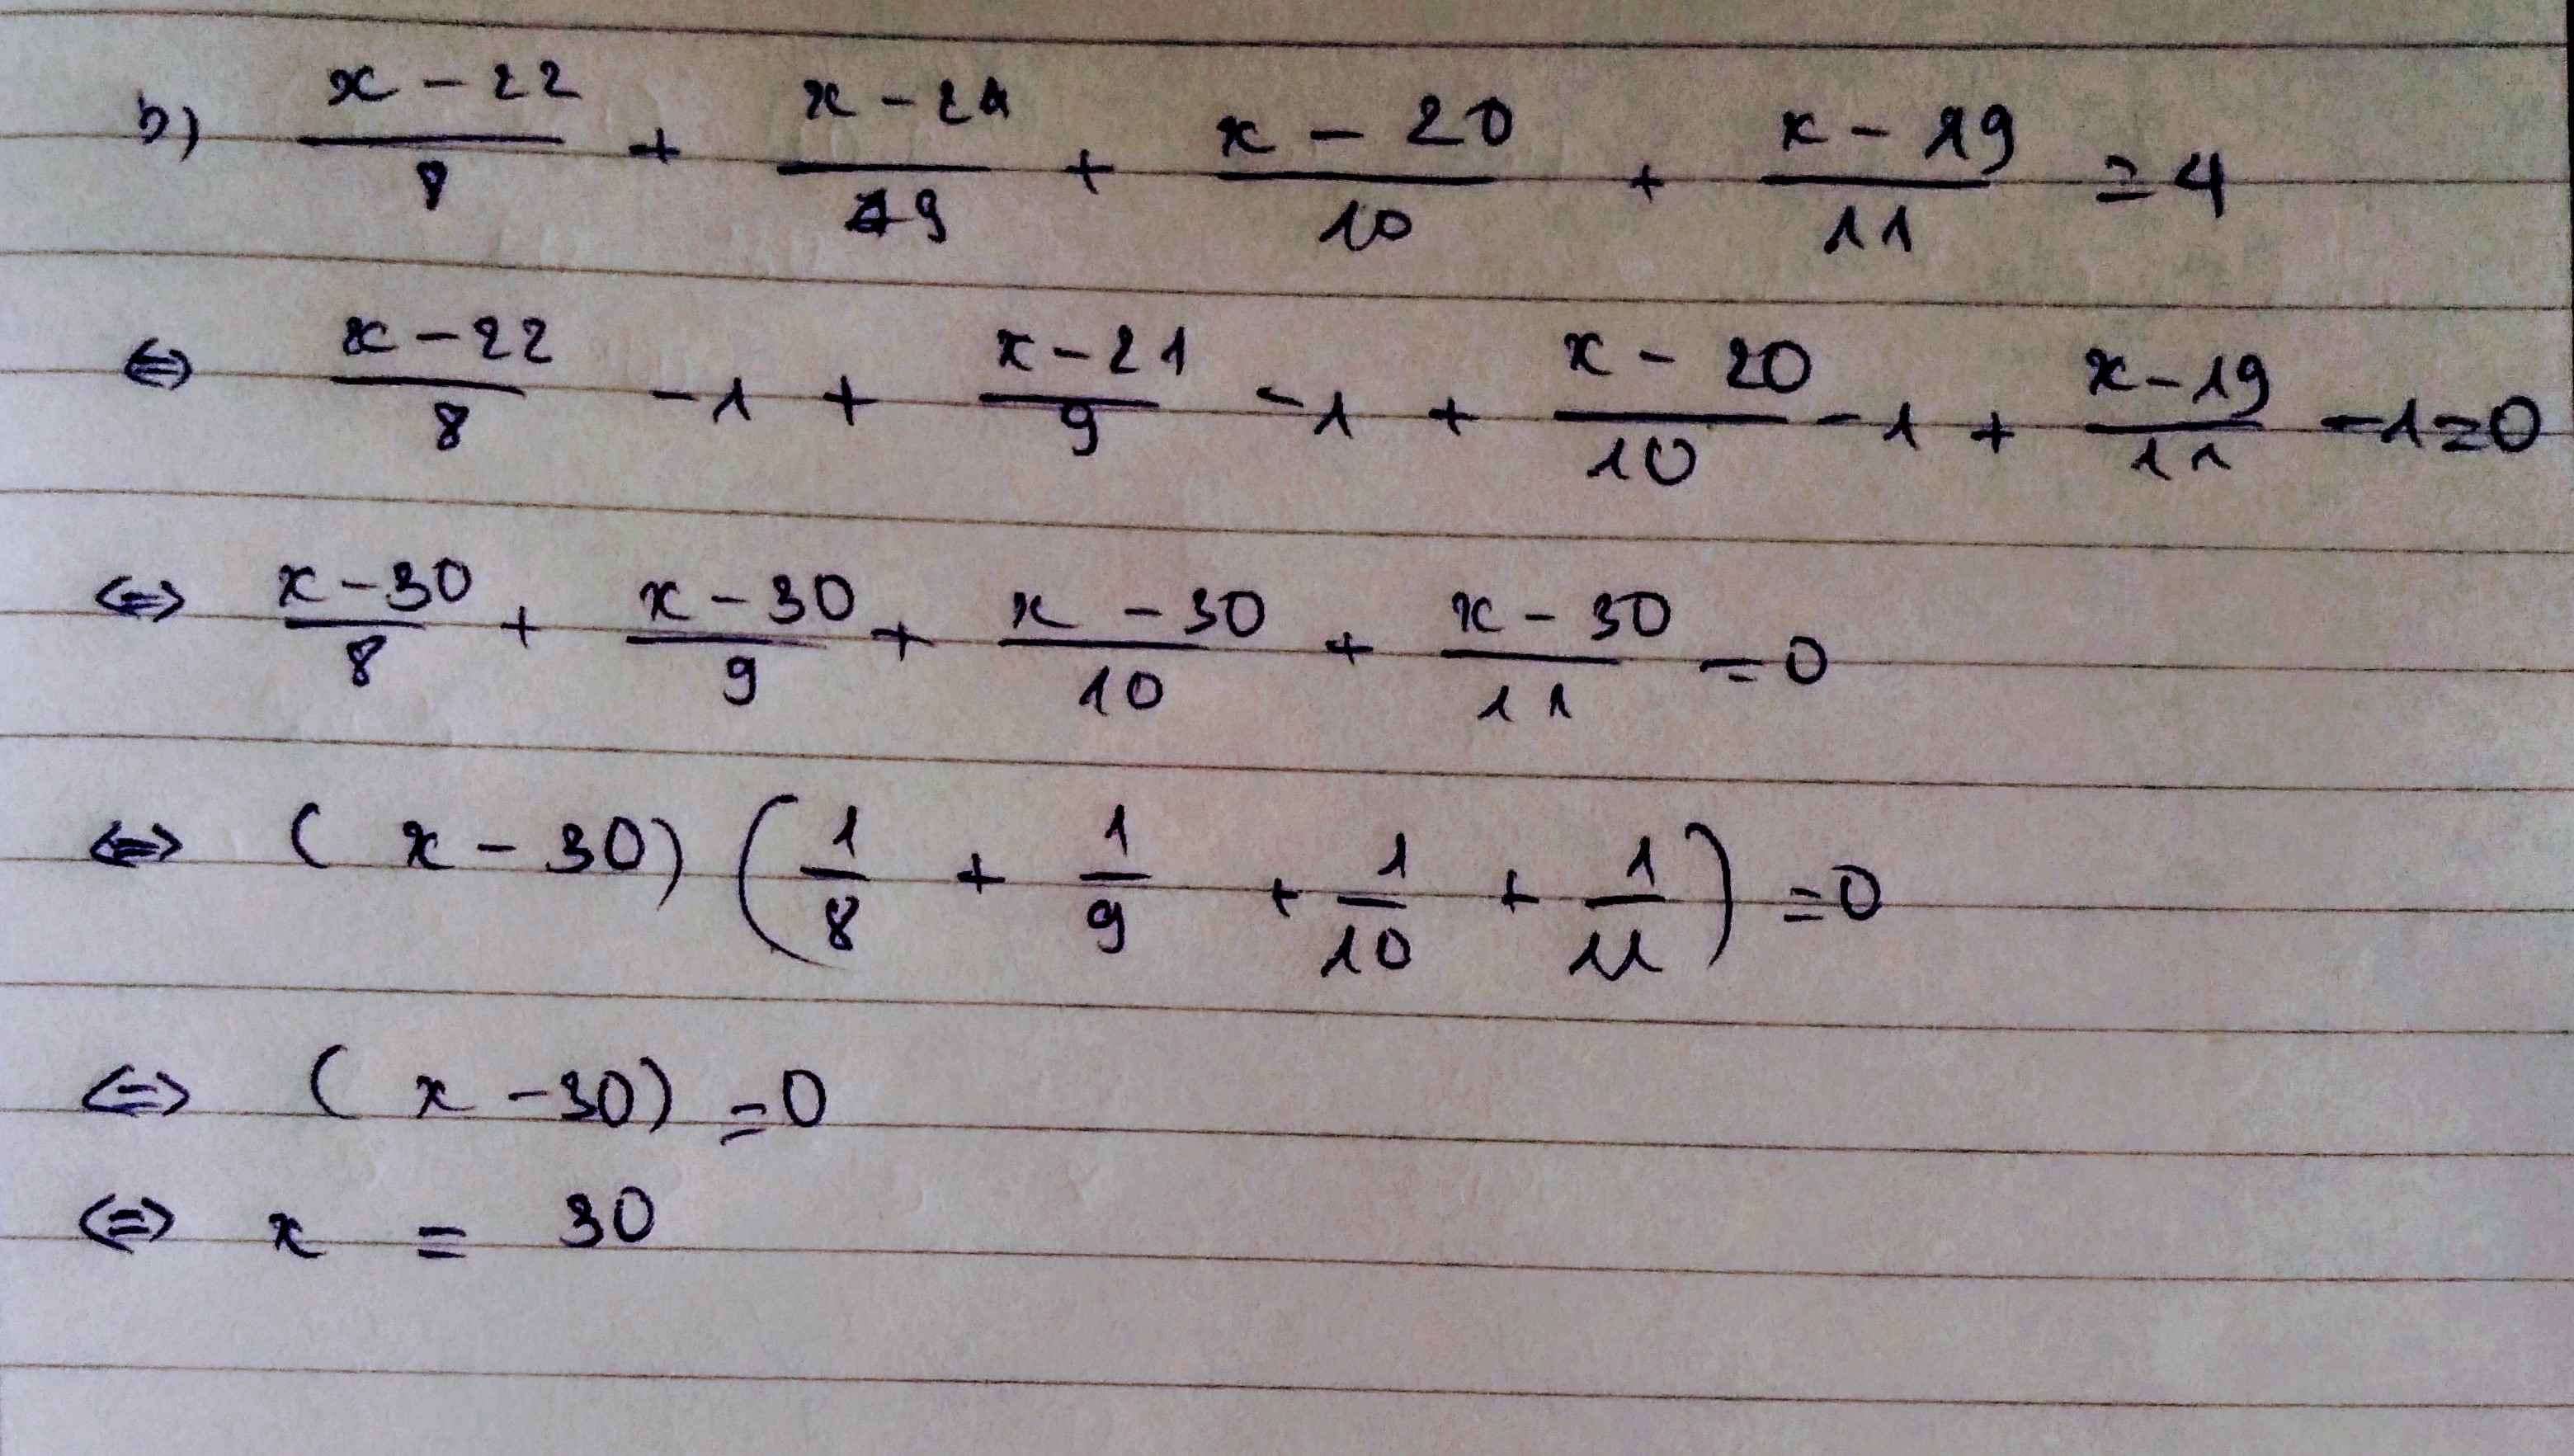 b) (x-22)/8 + (x-21)/9 + (x-20)/10 + (x-19)/11 = 4
⇔ (x-22)/8 -1 + (x-21)/9 -1 + (x-20)/10 -1 + (x-19)/11 -1 = 0
⇔ (x-30)/8 + (x-30)/9 + (x-30)/10 + (x-30)/11 = 0
⇔ (x-30) (1/8 + 1/9 + 1/10 + 1/11) = 0
⇔ (x-30) = 0
⇔ x = 30